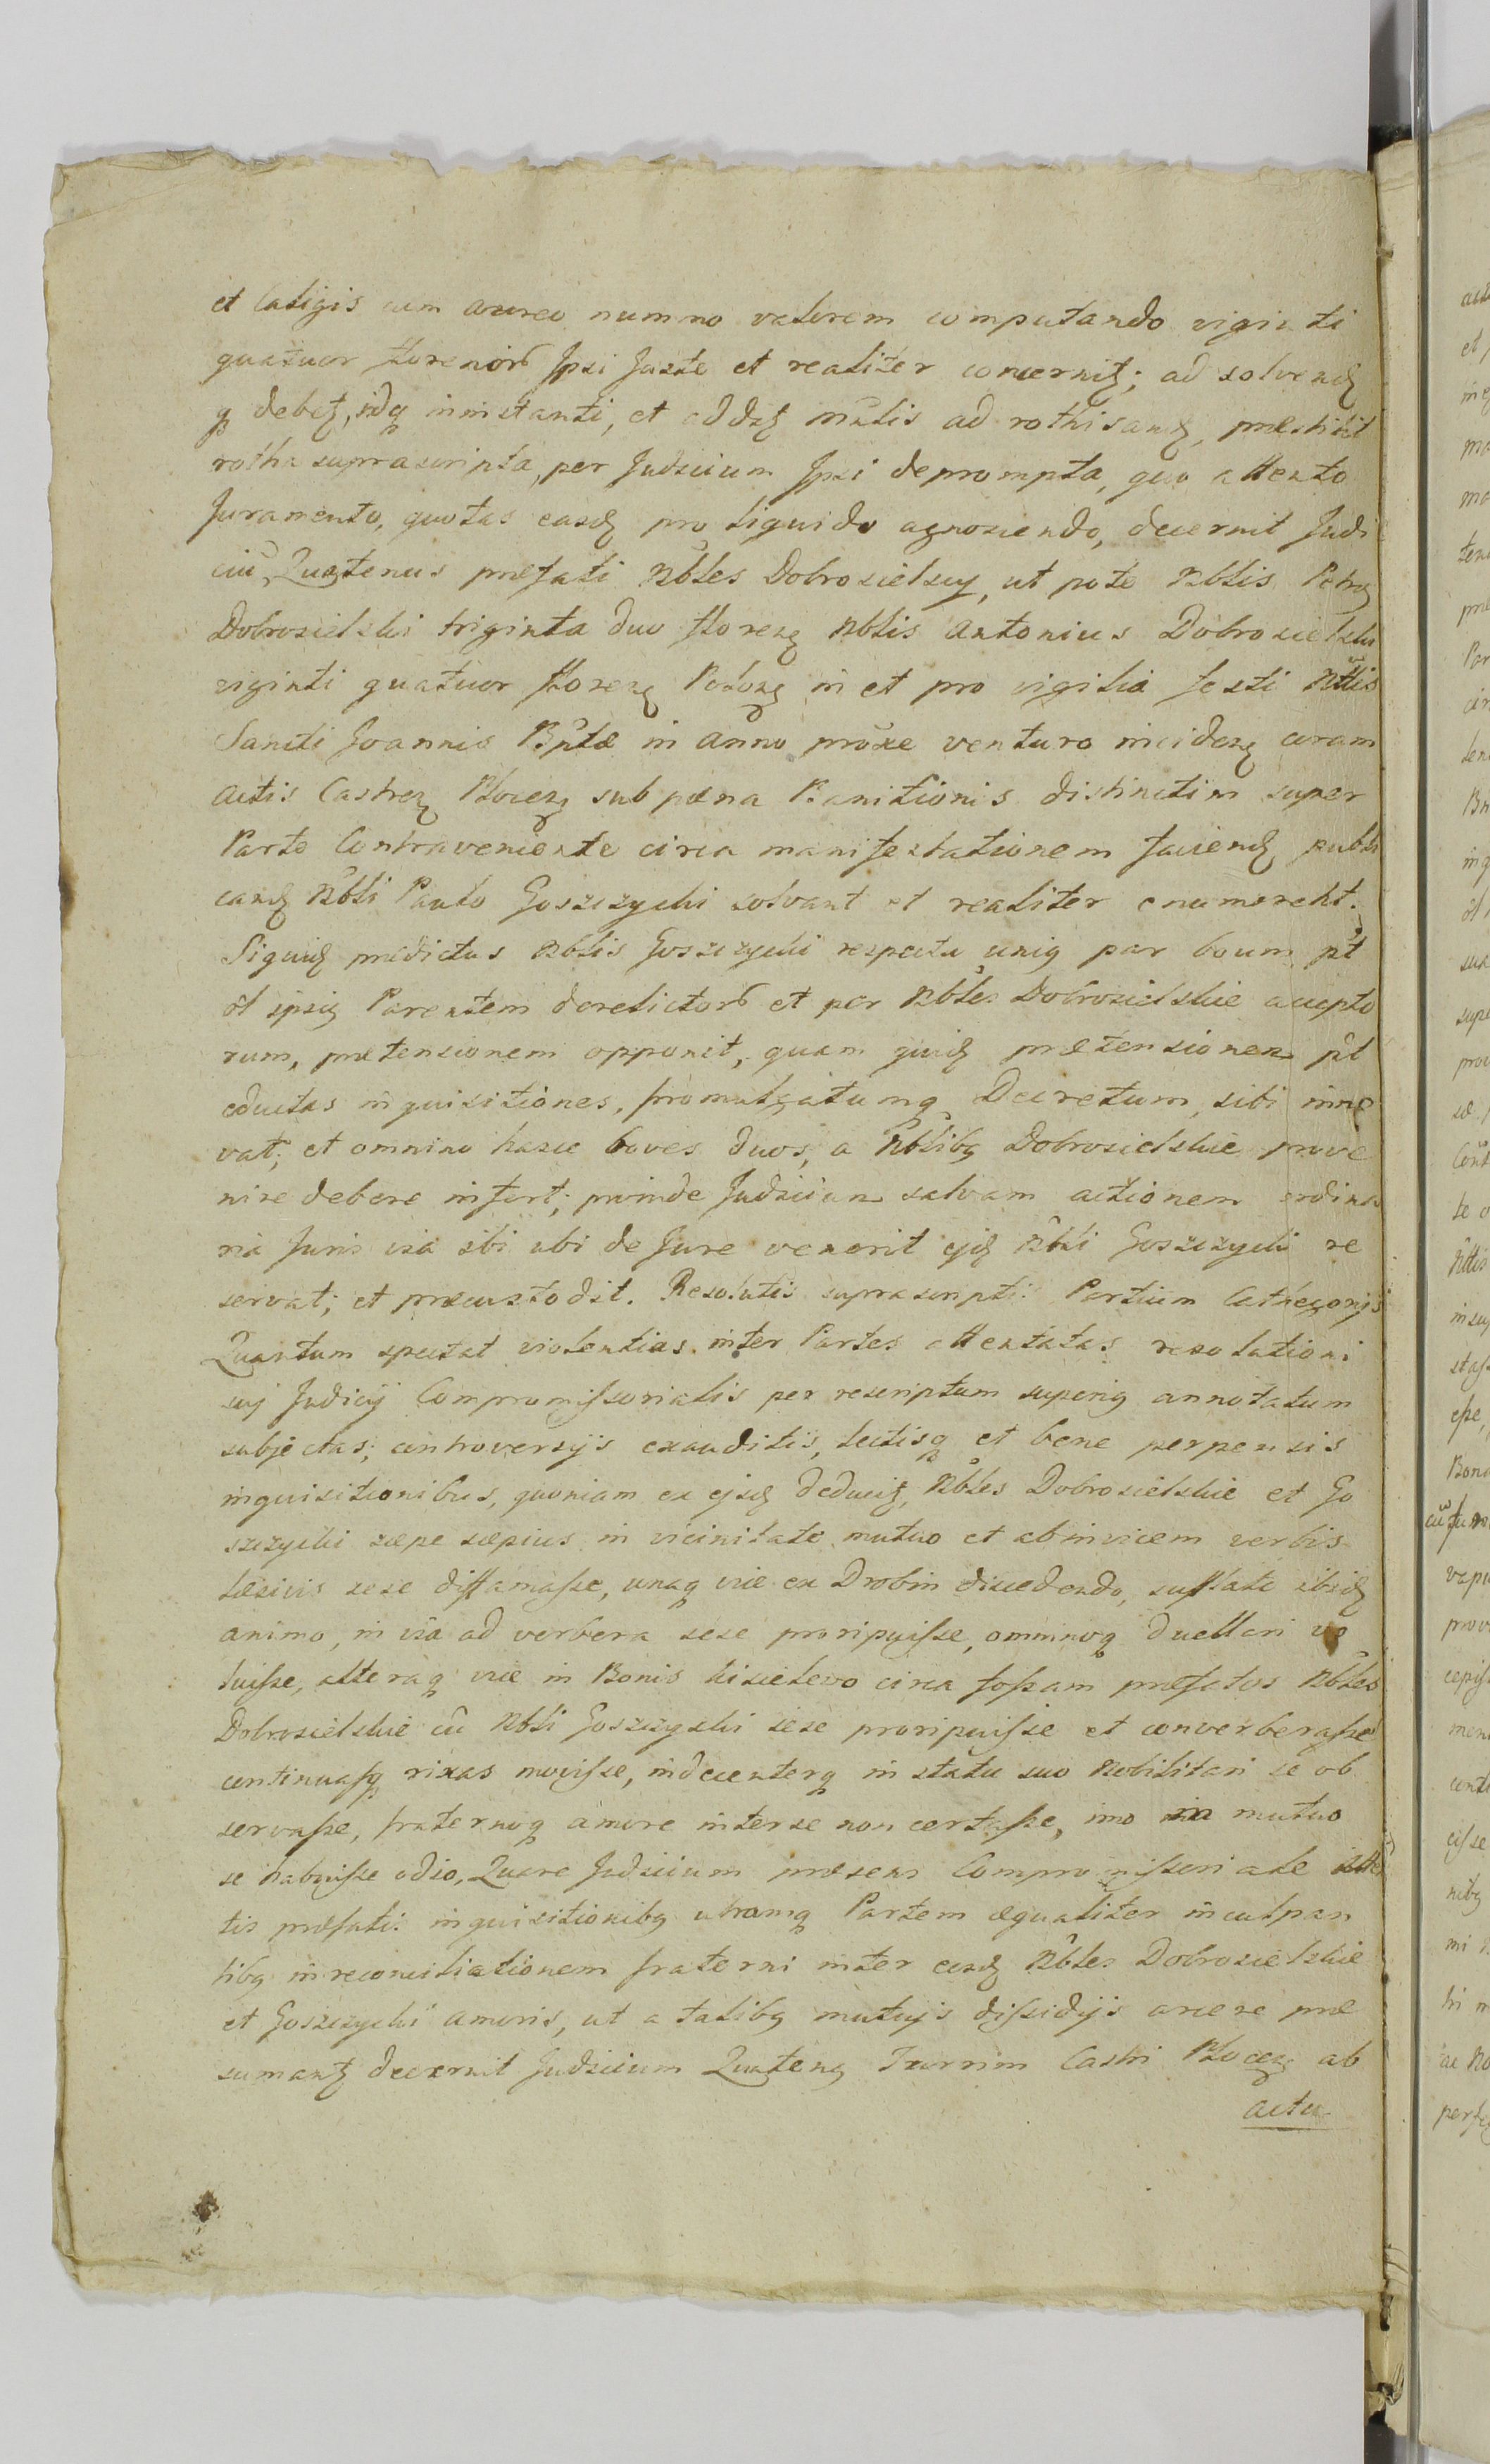 et Caligis cum aureo nummo valorem computando viginti
quatuor florenorũ Ipsi Juste et realiter concernitʒ; ad solvendʒ
qʒ debetʒ, idqʒ in instanti, et addatʒ mentis ad rothisandʒ, præstitit
rotha suprascripta, per Judicium Ipsi deprompta, quo attento
Juramento, quotas easdʒ pro liquido agnoscendo, decernit Judi
ciũ, Quatenus præfati Nbles Dobrosielscy, ut pote Nblis Petrʒ
Dobrosielski triginta duo florenʒ Nblis Antonius Dobrosielski
viginti quatuor florenʒ Polonʒ in et pro vigilia festi Nttis
Sancti Joannis Bptæ in anno proxe venturo incidenʒ coram
Actis Castrenʒ Plocenʒ sub pæna Banitionis distinctim super
Parte Contraveniente circa manifestationem faciendʒ publi
candʒ Nbli Paulo Goszczycki solvant et realiter enumerent.
Siquidʒ prædictus Nblis Goszczycki respectu uniʒ par boum pt
ol ipsiʒ Parentem derelictorũ et per Nbles Dobrosielskie accepto
rum, prætensionem opponit, quam quidʒ prætensionem pt
eductas inquisitiones, promulgatumqʒ Decretum, sibi inno
vat; et omnino hasce boves duos, a Nblibʒ Dobrosielskie prove
nire debere infert; proinde Judicium salvam actionem ordina
ria Juris via ibi ubi de Jure venerit ejdʒ Nbli Goszczycki re
servat; et præcustodit. Resolutis suprascripti: Partium Cathegorijs
Quantum spectat violentias inter Partes attentatas resolutioni
sui Judicij Compromissorialis per rescriptum superiʒ annotatum
subjectas; controversijs exauditis, lectisqʒ et bene perpensis
inquisitionibus, quoniam ex ejsdʒ deducitʒ, Nbles Dobrosielskie et Go
szczycki sæpe sæpius in vicinitate mutuo et ab invicem verbis
læsivis sese diffamasse, unaqʒ vice ex Drobin discedendo, sufflato ibidʒ
animo, in via ad verbera sese proripuisse, omninoqʒ duellari vo
luisse, alteraqʒ vice in Bonis Kisielewo circa fossam præfatos Nbles
Dobrosielskie cũ Nbli Goszczycki sese proripuisse et converberasse
continuasqʒ rixas movisse, indecenterqʒ in statu suo Nobilitari se ob
servasse, fraternoqʒ amore inter se non certasse, imo in mutuo
se habuisse odio, Quare Judicium præsens Compromissoriale atten
tis præfati: inquisitionibʒ utramqʒ Partem æqualiter inculpan
tibʒ in reconciliationem fraterni inter eosdʒ Nbles Dobrosielskie
et Goszczycki amoris, ut a talibʒ mutuijs dissidijs arcere præ
sumantʒ decernit Judicium Quatenʒ Turrim Castri Plocenʒ ab
actu